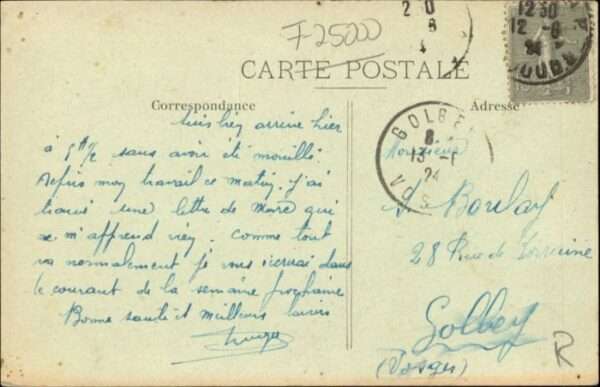 F-25000
CARTE POSTALE
Correspondance
Adresse
Suis bien arrivé hier
à 5h½ sans avoir été mouillé
Repris mon travail ce matin. j'ai
trouvé une lettre de Marc qui
ne m'apprend rien. Comme tout
va normalement je vous écrirai dans
le courant de la semaine prochaine
Bonne santé et meilleurs baisers
Monsieur
A. Boulay
28 Rue de Lorraine
Golbey
(Vosges)
R
GOLBEY
8
13 -
24
VOSGES
12 30
12 -6
24
DOUBS